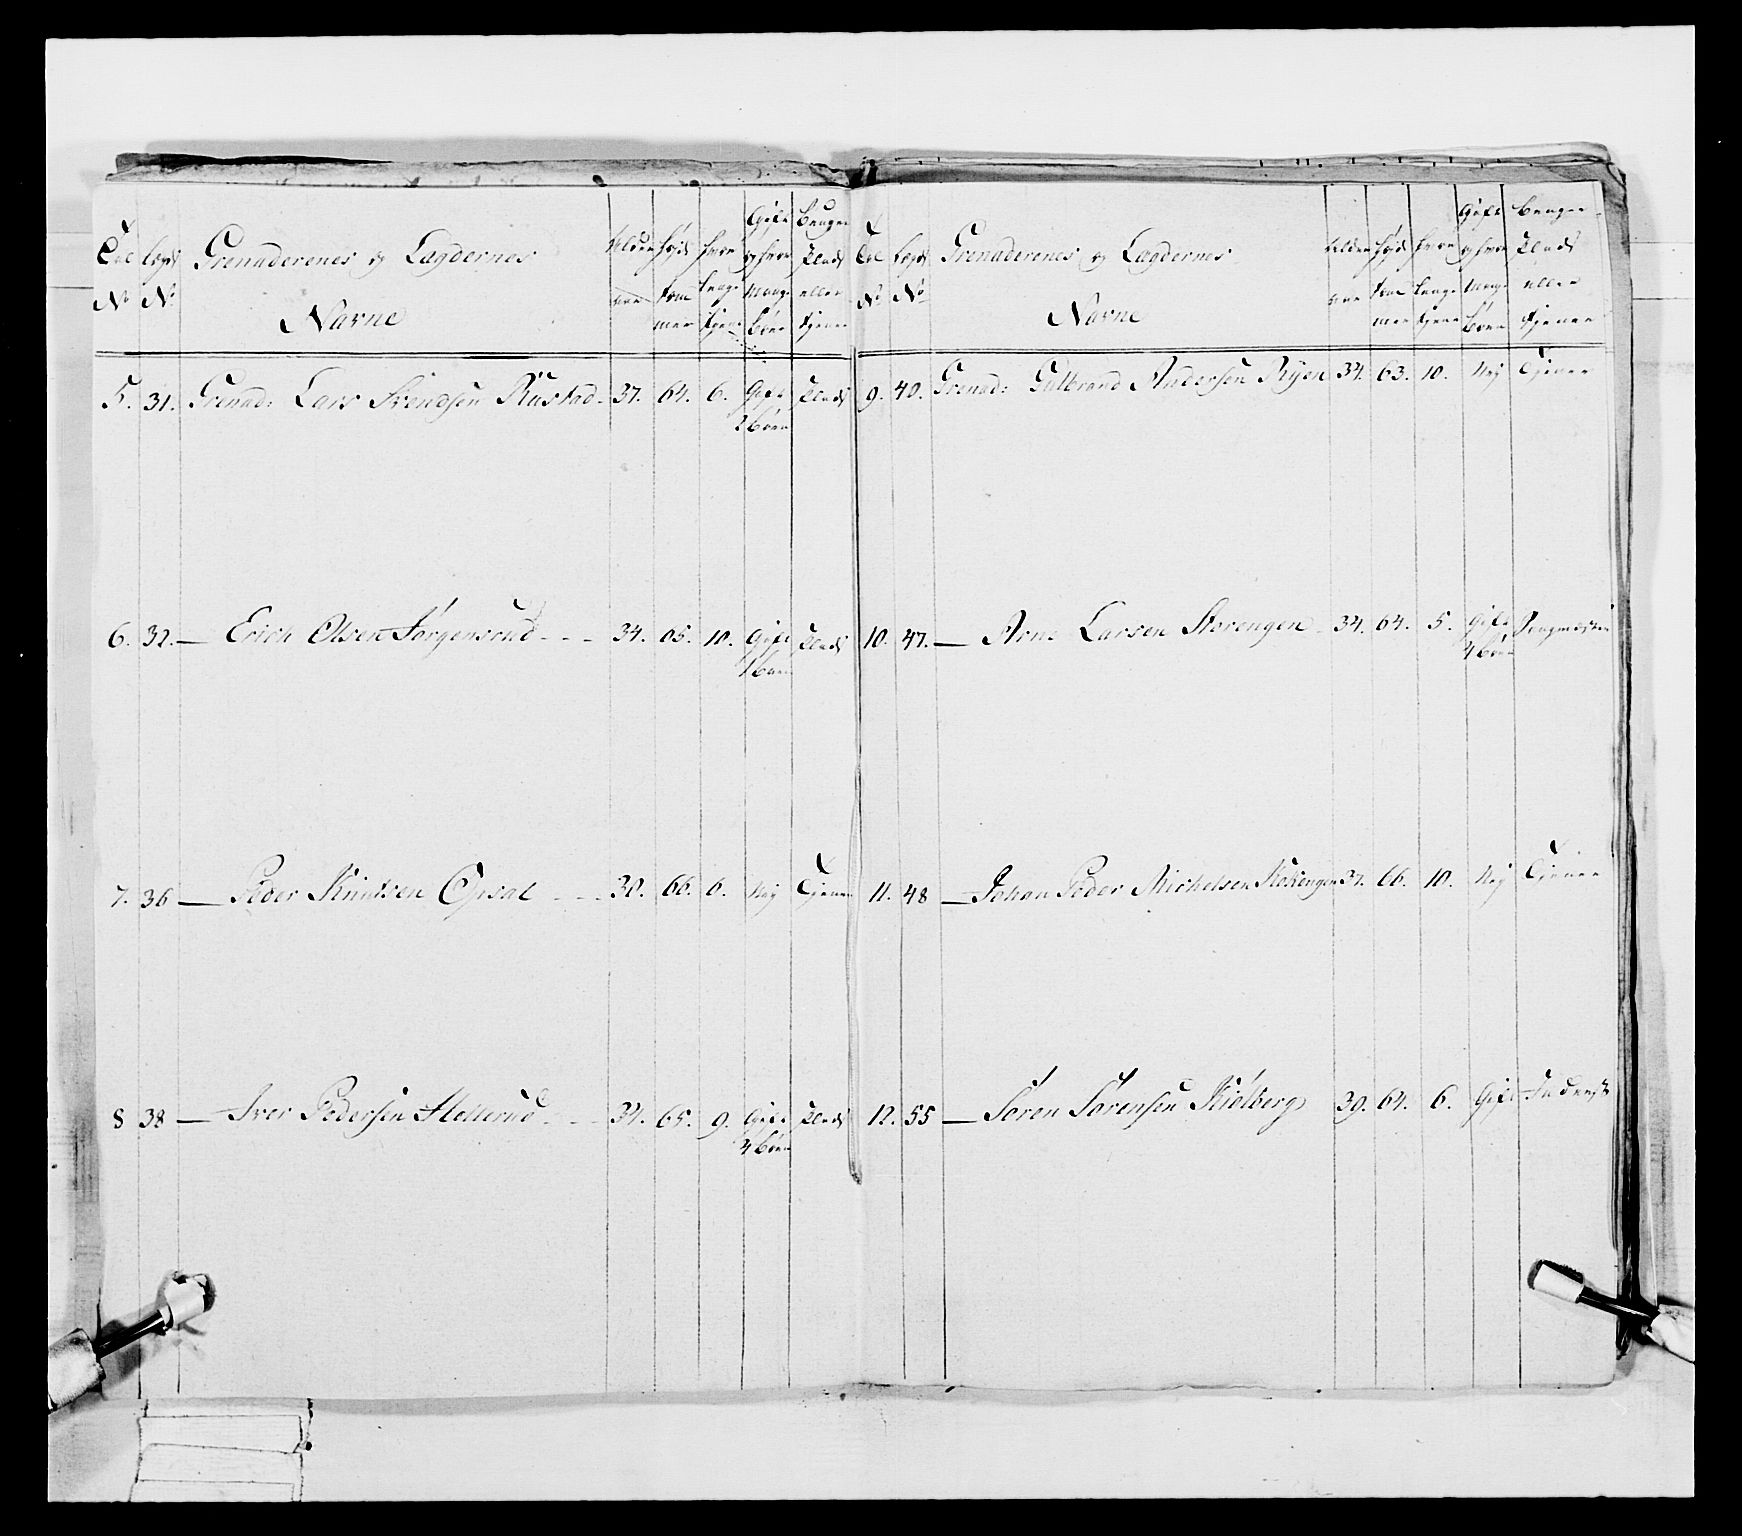 Tal N° Legd N° Grenaderenes og Lægdernes Navne Alder Høyde Tommer hvor længe tient Gift og hvor mange Børn Bruger Plads eller tjener
5. 31. Grenad: Lars Svendsen Rustad 37. 64. 6. Gift 2 børn Plads
6. 32. — Erich Olsen Jørgensrud 34. 65. 10. Gift 1 barn Plads
7. 36 — Peder Knudsen Opsal 30. 66. 6. Nej Tjener
8 38 — Iver Pedersen Hellerud 34. 65. 9. Gift 4 børn Plads
Tal N° Legd N° Grenaderenes og Lægdernes Navne Alder Høyde Tommer hvor længe tjent Gift og hvor mange Børn Bruger Plads eller tjener
9. 40. Grenad: Gulbrand Andersen Ryen 34. 63. 10. Nej Tjener
10. 47. — Arne Larsen Storengen 34. 64. 5. Gift 4 børn
11. 48 — Johan Peder Michelsen 37. 66. 10. Nej Tjener
12. 55 — Søren Sørensen Kiølberg 39. 64. 6. Gift Inderst